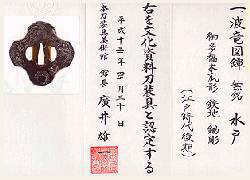 一 波竜図鐔 無銘 水戸
竪多福木瓜形 鉄地 鋤彫
(江戸時代後期)
右を文化資料刀装具と認定する
平成十三年四月三十日
日本刀装具美術館 館長 廣井雄一